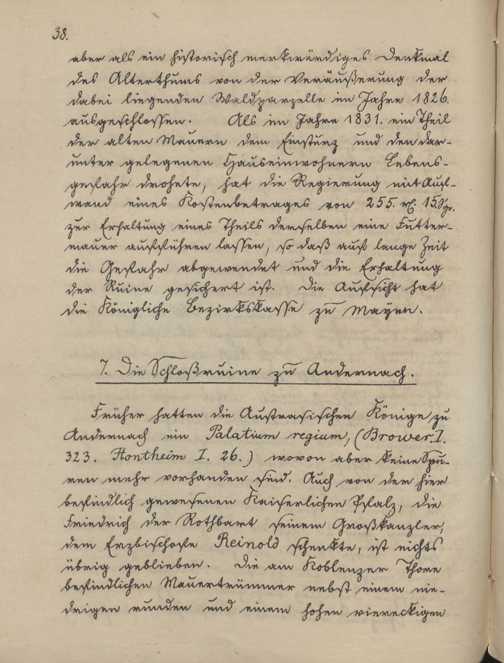 38.
aber als ein historisch merkwürdiges Denkmal
des Alterthums von der Veräußerung der
dabei liegenden Waldparzelle im Jahre 1826.
ausgeschlossen. Als im Jahre 1831. ein Theil
der alten Mauern dem Einsturz und den dar-
unter gelegenen Hauseinwohnern Lebens-
gefahr drohete, hat die Regierung mit Auf-
wand eines Kostenbetrages von 255. rf. 15 Sgr.
zur Erhaltung eines Theils derselben eine Futter-
mauer aufführen lassen, so daß auf lange Zeit
die Gefahr abgewendet und die Erhaltung
der Ruine gesichert ist. Die Aufsicht hat
die Königliche Bezirkskasse zu Mayen.
7. Die Schloßruine zu Andernach.
Früher hatten die Austrasischen Könige zu
Andernach ein Palatium regium, (Brower. I.
323. Hontheim I. 26.) wovon aber keine Spu-
ren mehr vorhanden sind. Auch von der hier
befindlich gewesenen Kaiserlichen Pfalz, die
Friedrich der Rothbart seinem Großkanzler,
dem Erzbischofe Reinold schenkte, ist nichts
übrig geblieben. Die am Koblenzer Thore
befindlichen Mauertrümmer nebst einem nie-
drigen runden und einem hohen viereckigen